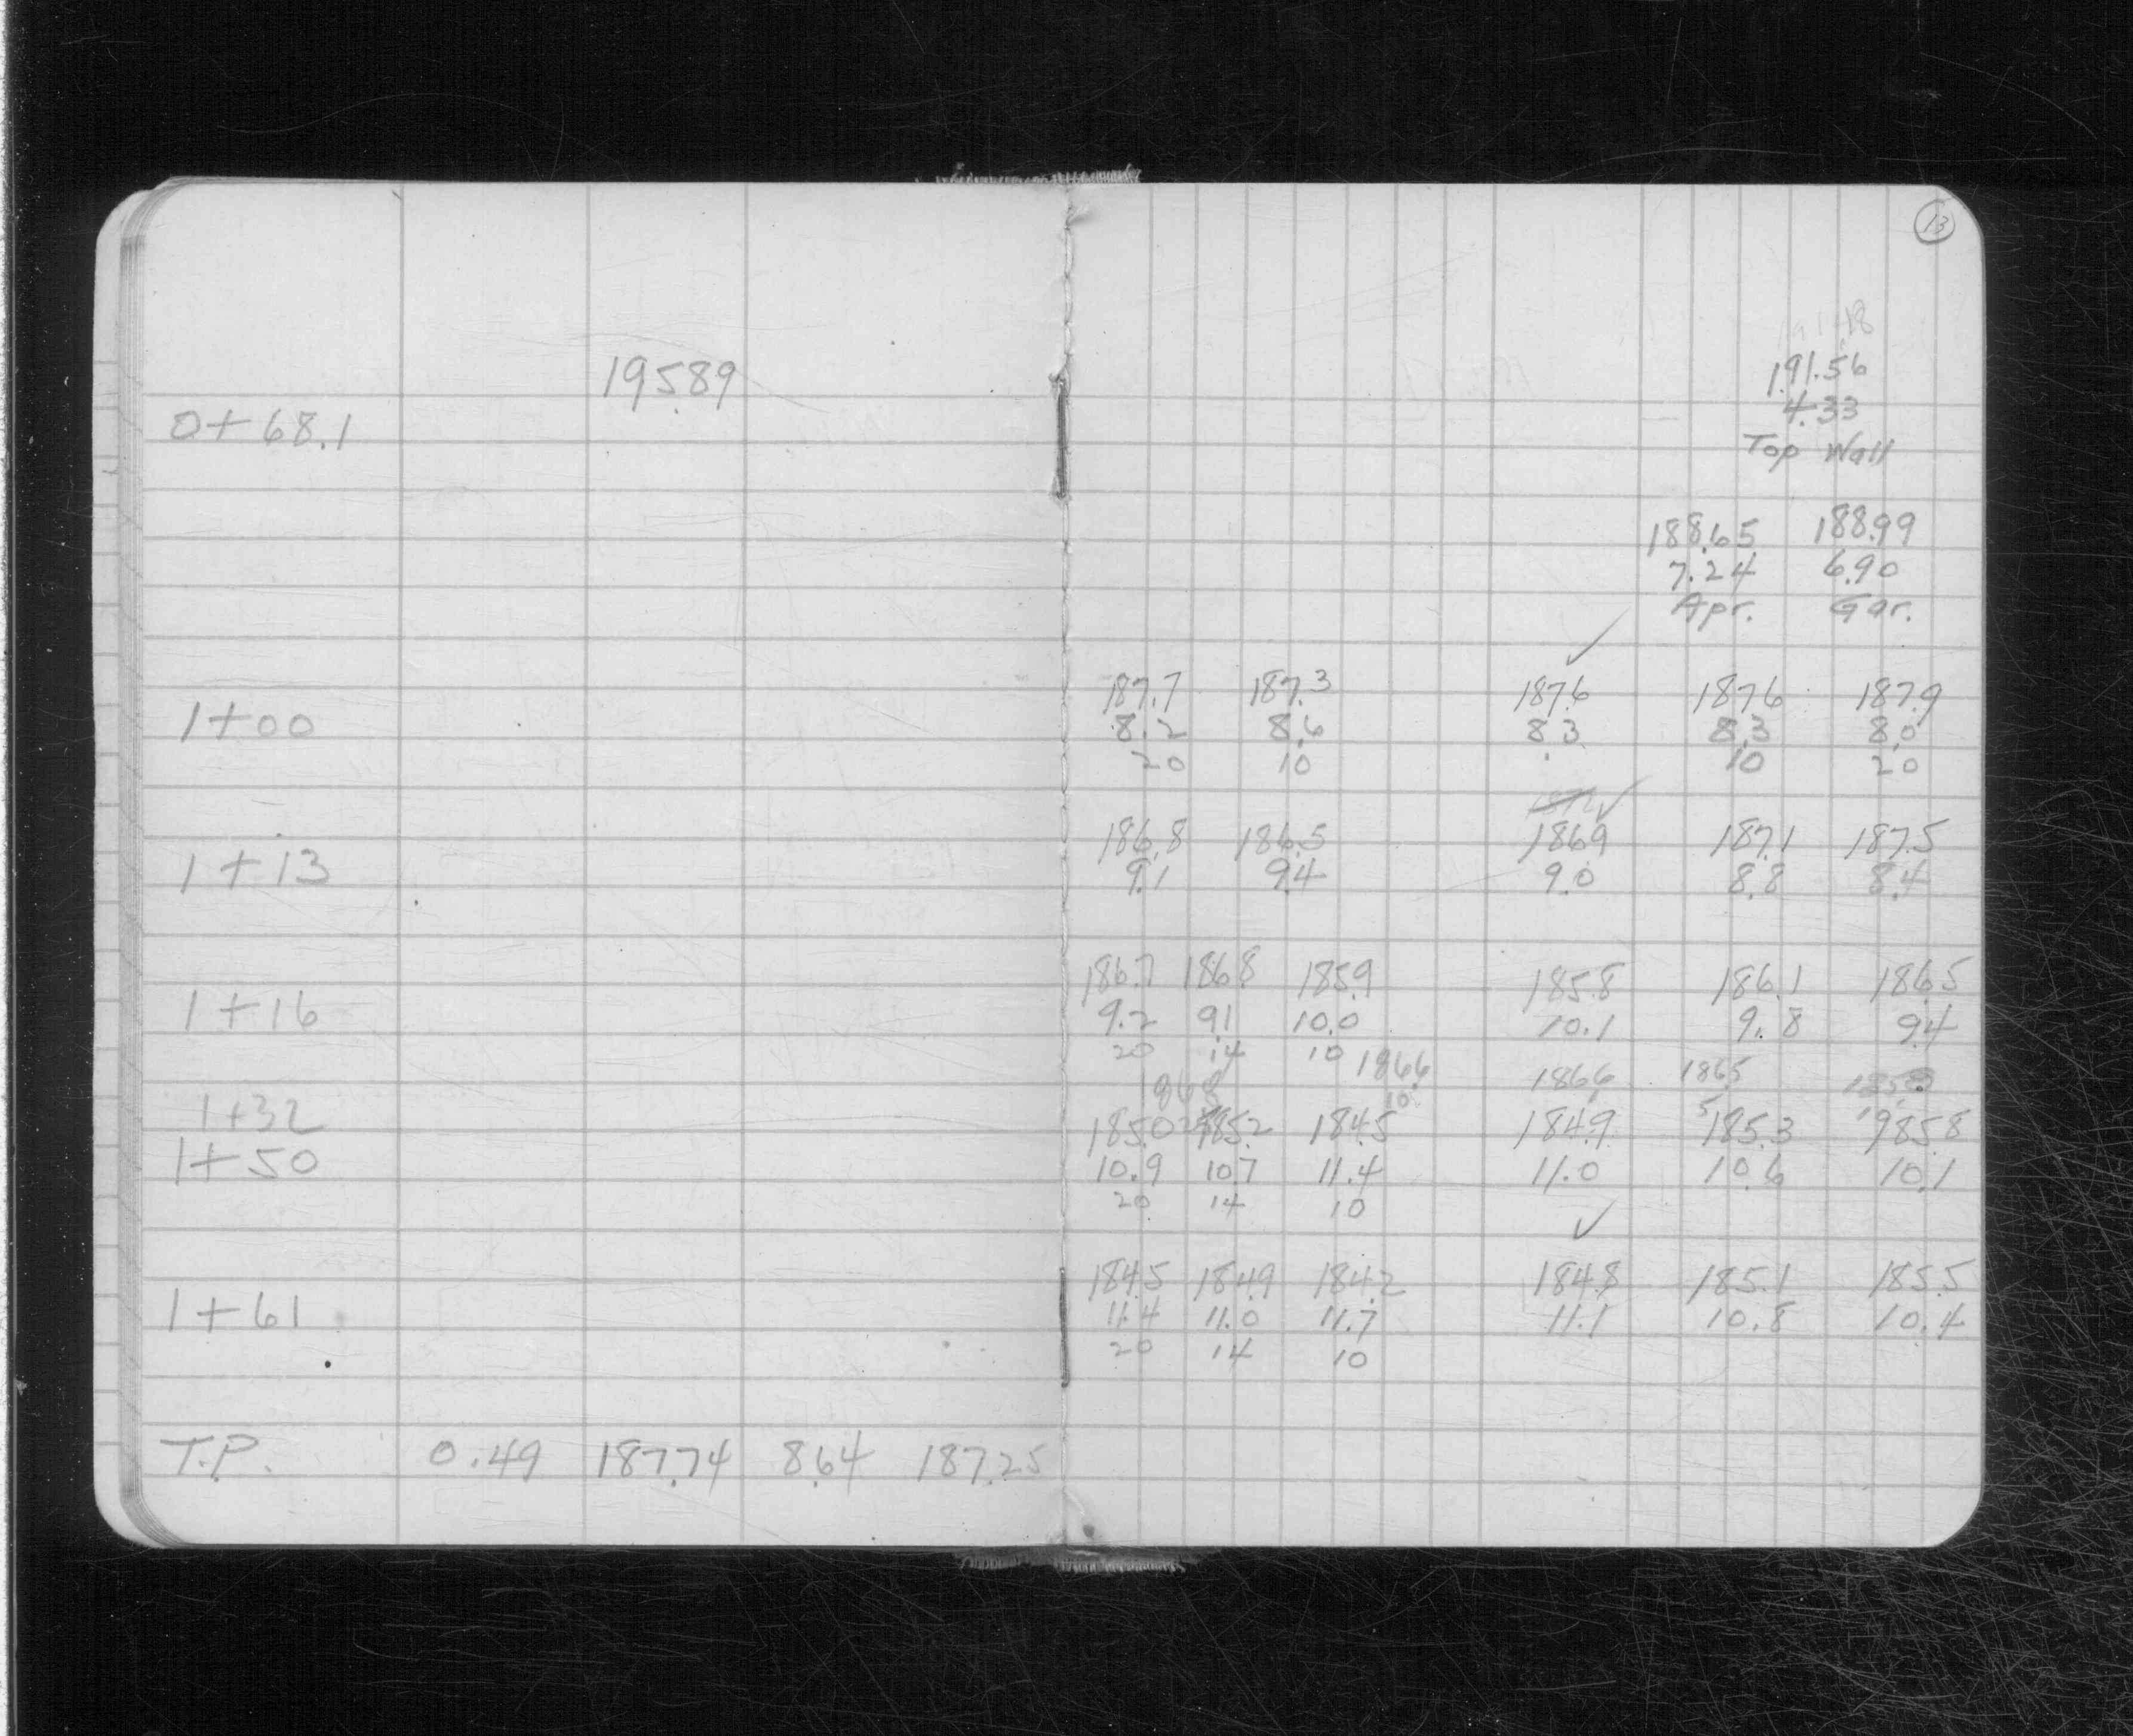 13
195.89
0+68.1
191.56
4.33
Top Wall
188.65 188.99
7.24 6.90
Apr. Gar.
187.7 187.3 187.6 187.6 187.9
1+00 8.2 8.6 8.3 8.3 8.0
20 10 10 20
186.8 186.5 186.9 187.1 187.5
1+13 9.1 9.4 9.0 8.8 8.4
186.7 186.8 185.9 185.8 186.1 186.5
1+16 9.2 9.1 10.0 10.1 9.8 9.4
20 14 10
1+32 186.6 186.6 186.5
185.0 185.2 184.5 184.9 185.3 185.8
1+50 10.9 10.7 11.4 11.0 10.6 10.1
20 14 10
184.5 184.9 184.2 184.8 185.1 185.5
1+61 11.4 11.0 11.7 11.1 10.8 10.4
20 14 10
T.P. 0.49 187.74 8.64 187.25